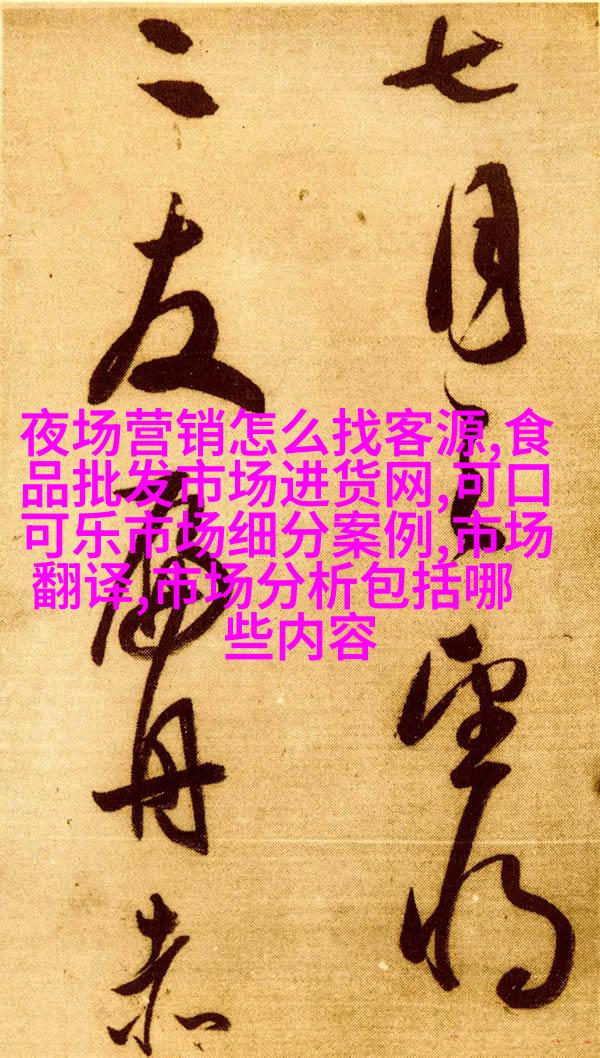 七月之望将
二友舟赤
夜场营销怎么找客源,食
品批发市场进货网,可口
可乐市场细分案例,市场
翻译,市场分析包括哪
些内容